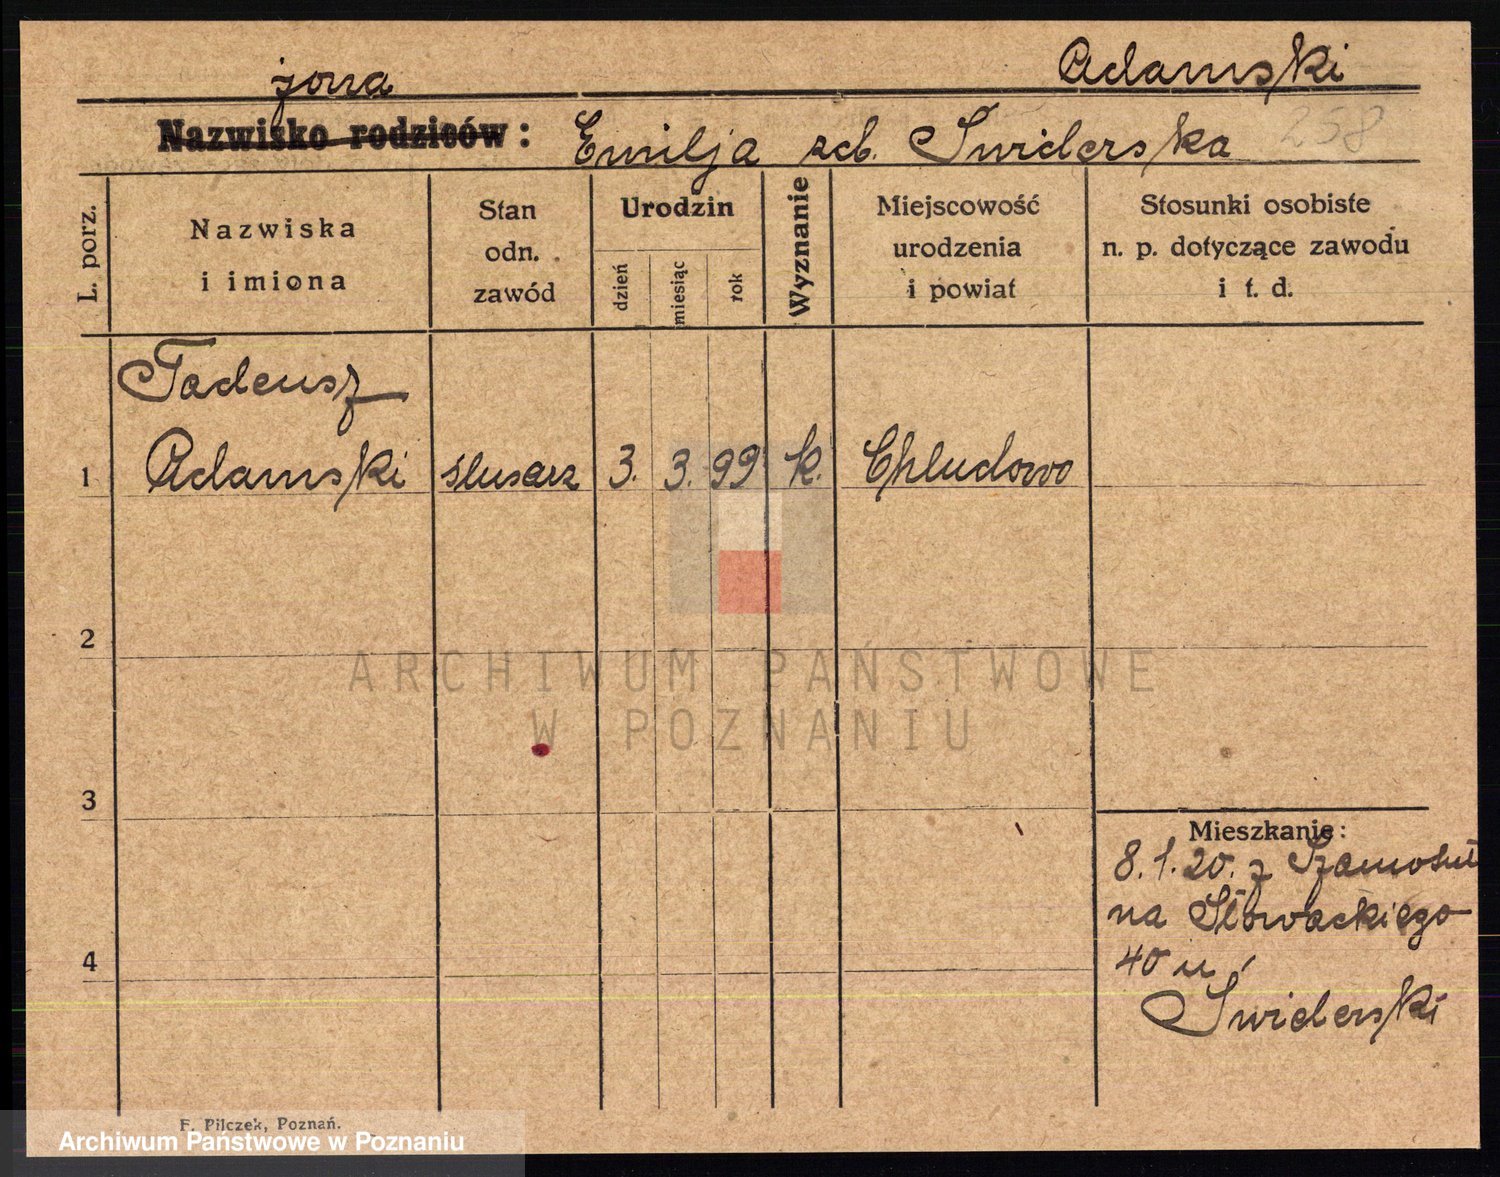 Adamski
żona
Nazwisko rodziców: Emilja zcb. Swiderska 258
L. porz.
Nazwiska
i imiona
Stan
odn.
zawód
Urodzin
dzień
miesiąc
rok
Wyznanie
Miejscowość
urodzenia
i powiat
Stosunki osobiste
n. p. dotyczące zawodu
i t. d.
Tadeusz
1 Adamski slusarz 3. 3. 99 k. Chludowo
2
3
4
Mieszkanie:
8.1.20. z Szamotuł
na Słowackiego
40 u
Swiderski
F. Pilczek, Poznań.
ARCHIWUM PAŃSTWOWE
W POZNANIU
Archiwum Państwowe w Poznaniu